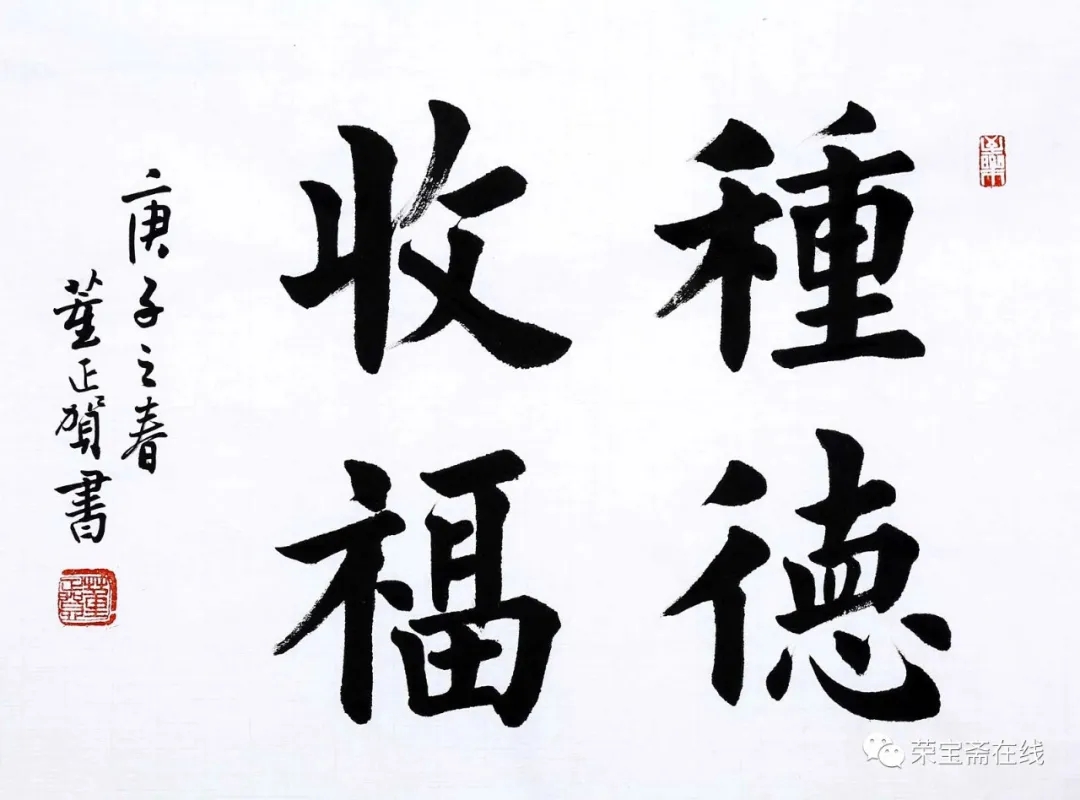 種德
收福
庚子之春
董正賀書
董正賀
荣宝斋在线